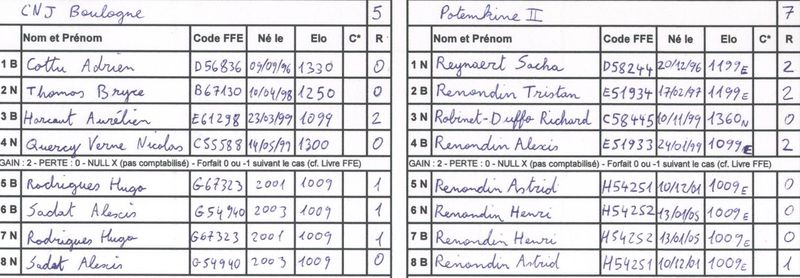 CNJ Boulogne 5
Nom et Prénom Code FFE Né le Elo C* R
1 B Cottu Adrien D56836 09/09/96 1330 0
2 N Thomas Bryce B67130 10/04/98 1250 0
3 B Harcaut Aurélien E61298 23/03/99 1099 2
4 N Quercy Verne Nicolas C55588 14/05/97 1300 0
GAIN : 2 - PERTE : 0 - NULL X (pas comptabilisé) - Forfait 0 ou -1 suivant le cas (cf. Livre FFE)
5 B Rodrigues Hugo G67323 2001 1009 1
6 B Sadat Alexis G54940 2003 1009 1
7 N Rodrigues Hugo G67323 2001 1009 1
8 N Sadat Alexis G54940 2003 1009 0
Potemkine II 7
Nom et Prénom Code FFE Né le Elo C* R
1 N Reynaert Sacha D58244 20/12/96 1199E 2
2 B Renondin Tristan E51934 17/02/97 1199E 2
3 N Robinet-Duffo Richard C58445 10/11/99 1360N 0
4 B Renondin Alexis E51933 24/01/99 1099E 2
GAIN : 2 - PERTE : 0 - NULL X (pas comptabilisé) - Forfait 0 ou -1 suivant le cas (cf. Livre FFE)
5 N Renondin Astrid H54251 10/12/01 1009E 0
6 N Renondin Henri H54252 13/01/05 1009E 0
7 B Renondin Henri H54252 13/01/05 1009E 0
8 B Renondin Astrid H54251 10/12/01 1009E 1